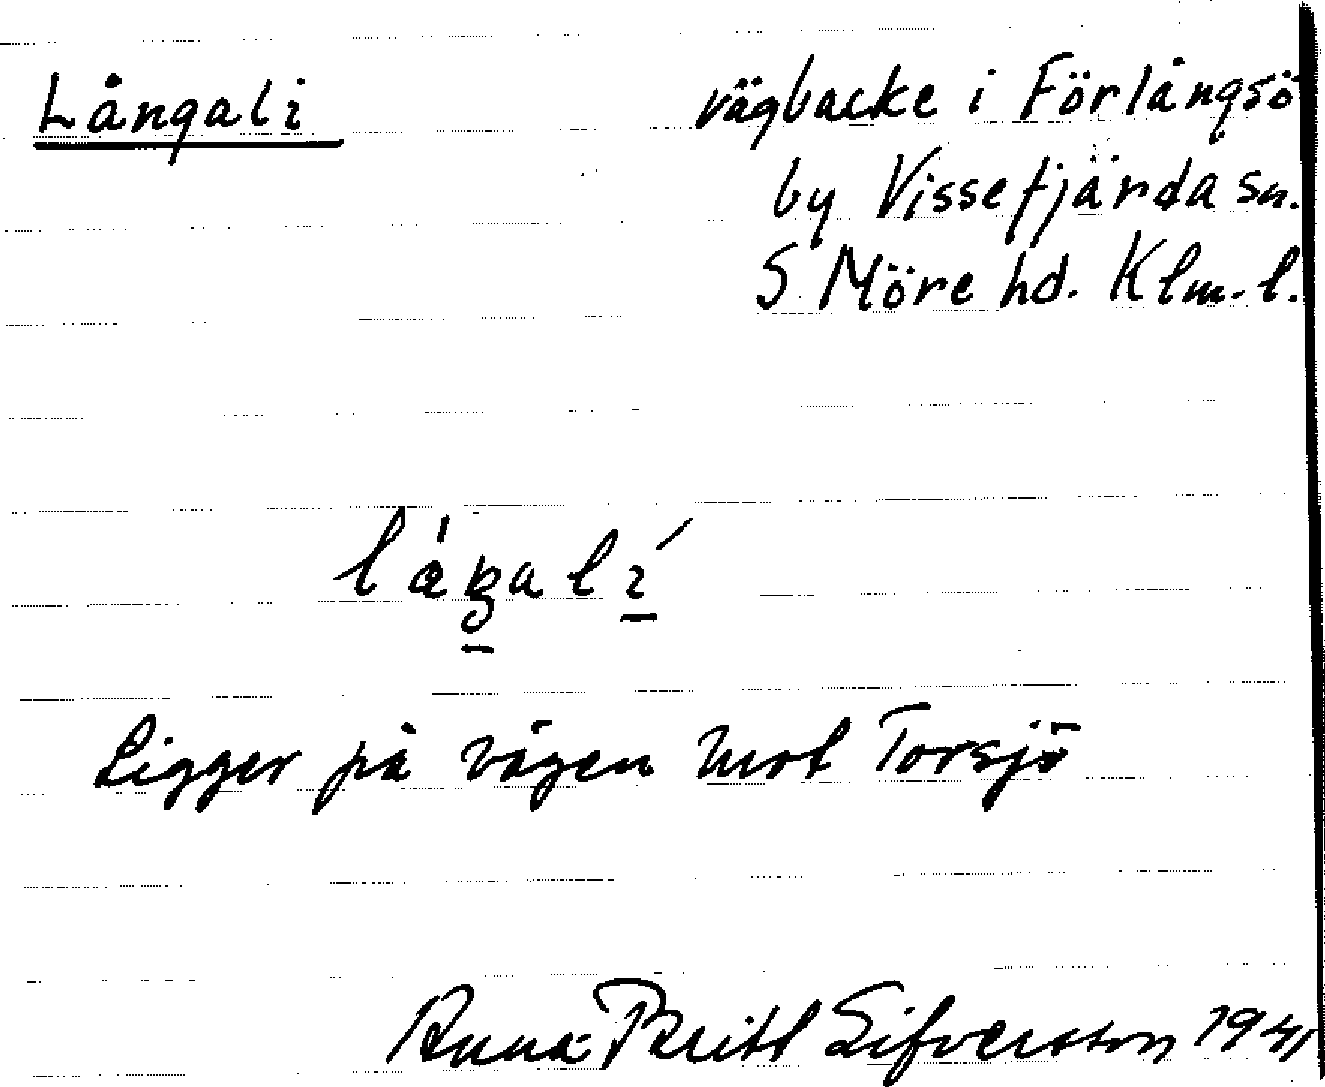 Långali
vägbacke i Förlångsö
by Vissefjärda sn.
S Möre hd. Klm. l.
Ligger på vägen mot Torsjö
Anna Britt Sifversson 1941